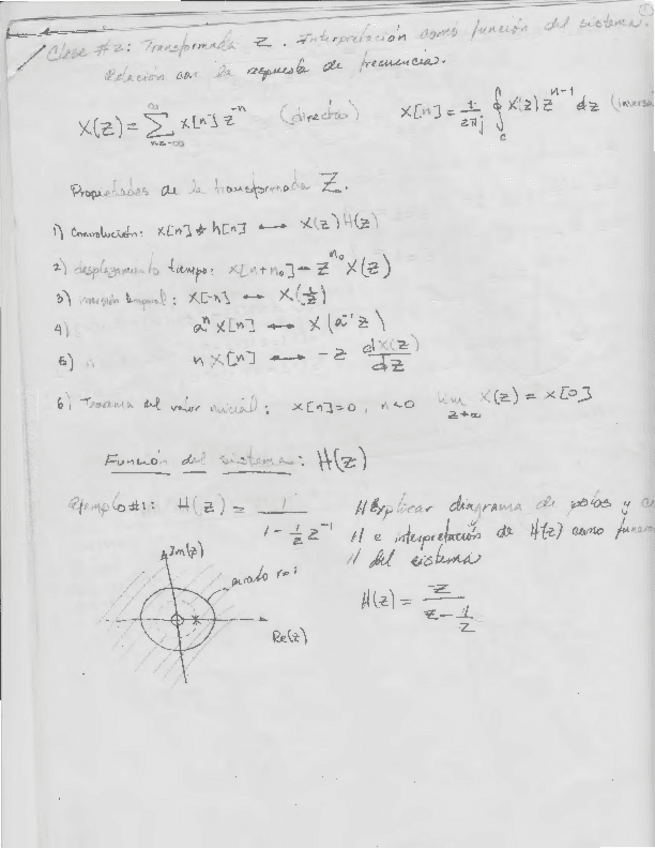 Clase #2: Transformada Z. Interpretación como función del sistema.
Relación con la respuesta de frecuencia.
X(z) = ∑_{n=-∞}^{∞} x[n] z^{-n} (directa) x[n] = 1/(2πj) ∮_c X(z) z^{n-1} dz (inversa
Propiedades de la transformada Z.
1) Convolución: x[n] * h[n] ↔ X(z) H(z)
2) desplazamiento tiempo: x[n+n₀] ↔ z^{n₀} X(z)
3) inversión temporal: x[-n] ↔ X(1/z)
4) aⁿ x[n] ↔ X(a⁻¹ z)
5) n x[n] ↔ -z dX(z)/dz
6) Teorema del valor inicial: x[n]=0, n<0 lim_{z→∞} X(z) = x[0]
Función del sistema: H(z)
Ejemplo #1: H(z) = 1/(1 - 1/2 z⁻¹) // Explicar diagrama de polos y ce
// e interpretación de H(z) como función
// del sistema
Im(z)
Re(z)
H(z) = z/(z - 1/2)